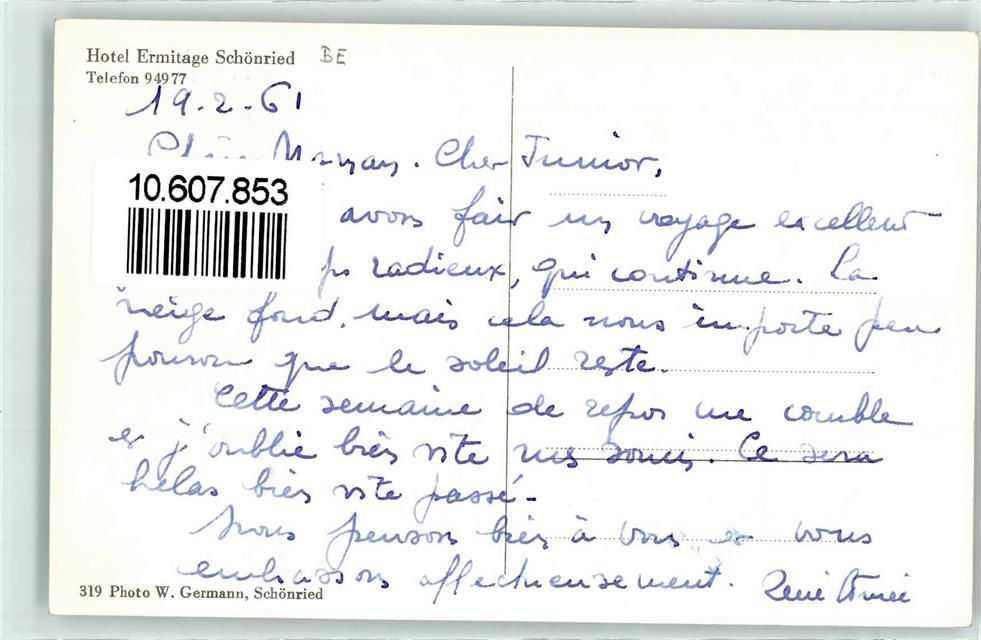 Hotel Ermitage Schönried BE
Telefon 94977
19-2-61
Cher Junior,
10.607.853
avons fait un voyage excellent
ps radieux, qui continue. La
neige fond, mais cela nous importe peu
pourvu que le soleil reste.
Cette semaine de repos me comble
et j'oublie bien vite mes soucis. Ce sera
hélas bien vite passé-
Nous pensons bien à vous et vous
embrassons affectueusement. René
319 Photo W. Germann, Schönried